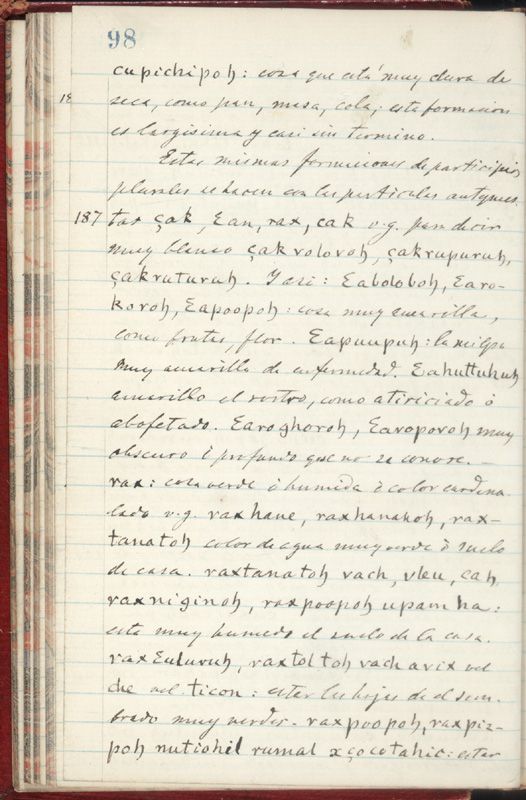 98
cupichipoh: cosa que está muy dura de
18 seca, como pan, masa, cola; esta formacion
es largisima y casi sin termino.
Estas mismas formaciones de participios
plurales se hacen con las particulas antepues-
187 tas çak, Ean, rax, cak v.g. para decir
muy blanco çakvolovoh, çakrupuruh,
çakruturuh. Y asi: Eaboloboh, Earo-
koroh, Eapoopoh: cosa muy amarilla,
como frutas, flor. Eapuupuh: la milpa
muy amarilla de enfermedad. Eahuttuhuh
amarillo el rostro, como atiriciado ó
abofetado. Earoghoroh, Earoporoh muy
obscuro ó profundo que no se conose.-
rax: cosa verde ó humida ó color cardena-
lado v.g. raxhane, raxhanakoh, rax-
tanatoh color de agua muy verde ó suelo
de casa. raxtanatoh vach, vleu, cah
raxniginoh, raxpoopoh upam ha:
esta muy humedo el suelo de la casa.
raxEuluruh, raxtoltoh vach avix vel
che vel ticon: estar las hojas de el sem-
brado muy verdes- raxpoopoh, raxpiz-
poh nutiohil rumal xçocotahic: estar